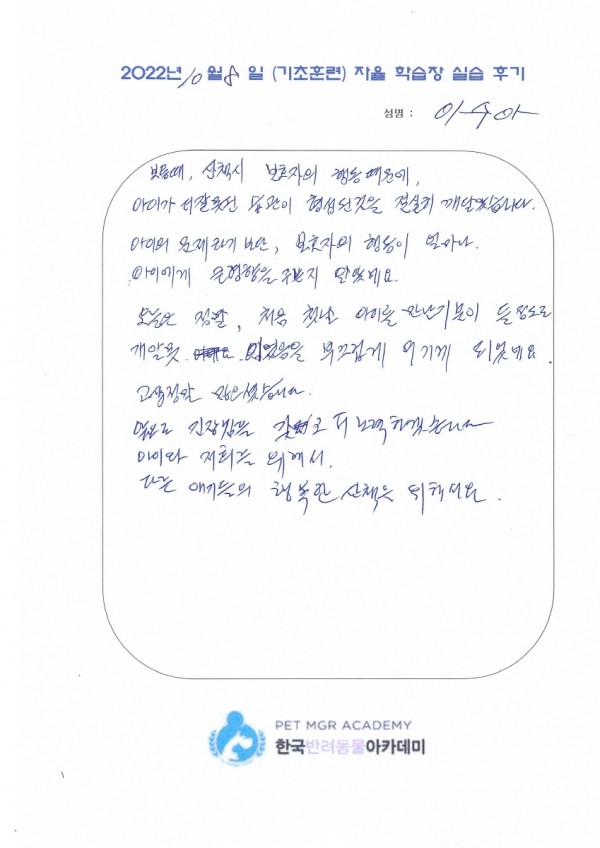 2022년 10월 8일 (기초훈련) 자율 학습장 실습 후기
성명 : 이수아
보통때, 산책시 보호자의 행동때문에,
아이가 더잘못된 습관이 형성된것을 절실히 깨달았습니다.
아이의 문제라기 보단, 보호자의 행동이 얼마나
아이에게 큰영향을 주는지 알았네요.
오늘은 정말, 처음 첫날 아이를 만난기분이 들정도로
개알못 이었음을 부끄럽게 여기게 되었네요
고생정말 많으셨습니다.
앞으로 긴장감을 갖고 더 노력하겠습니다
아이와 저희를 위해서.
다른 애기들의 행복한 산책을 위해서요.
PET MGR ACADEMY
한국반려동물아카데미